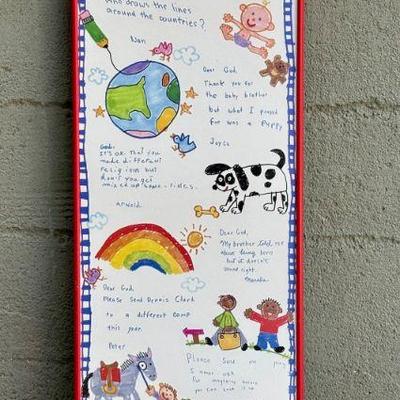 who draws the lines
around the countries?
Nan
Dear God,
Thank you for
the baby brother
but what I prayed
for was a puppy
Joyce
God-
It's ok that you
made different
religions but
don't you get
mixed up some-times.
Arnold
Dear God,
My brother told me
about being born
but it doesn't
sound right.
Marsha
Dear God,
Please Send Dennis Clark
to a different camp
this year.
Peter
Please